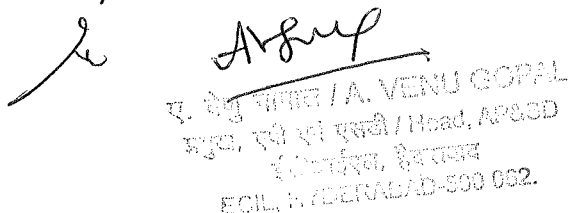 ए. वेणु गोपाल / A. VENU GOPAL
प्रमुख, एपी एवं एसडी / Head, AP&SD
हैदराबाद
ECIL, HYDERABAD-500 062.